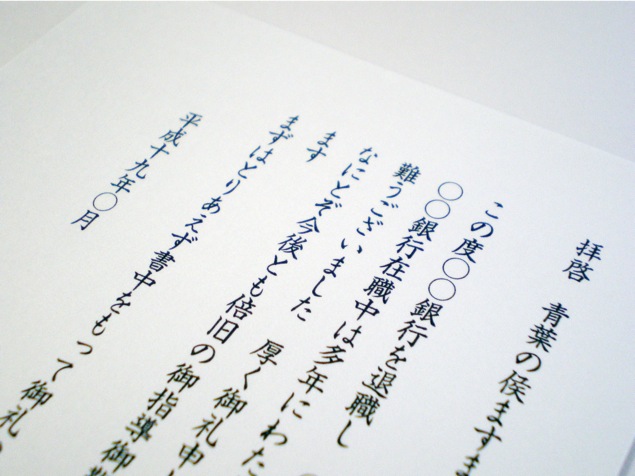 拝啓　青葉の候ますま
この度〇〇銀行を退職し
〇〇銀行在職中は多年にわた
難うございました　厚く御礼申
なにとぞ今後とも倍旧の御指導御
ます
まずはとりあえず書中をもって御礼
平成十九年〇月